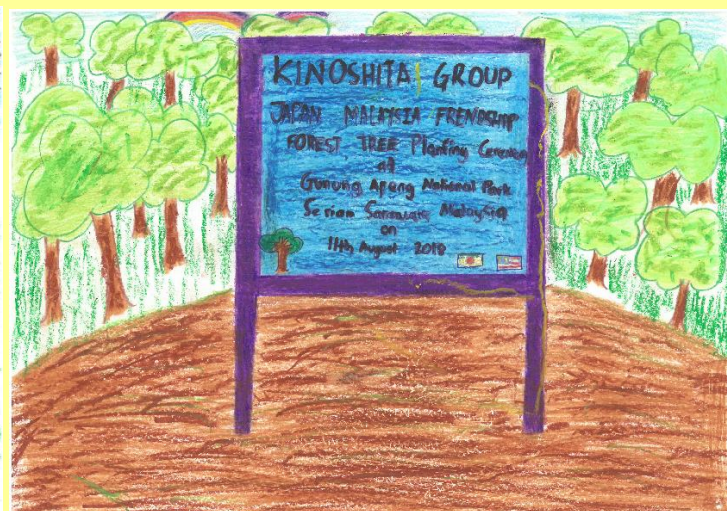 KINOSHITA GROUP
JAPAN MALAYSIA FRENDSHIP
FOREST TREE Planting Ceremony
at
Gunung Apeng National Park
Serian Sarawak Malaysia
on
11th August 2018